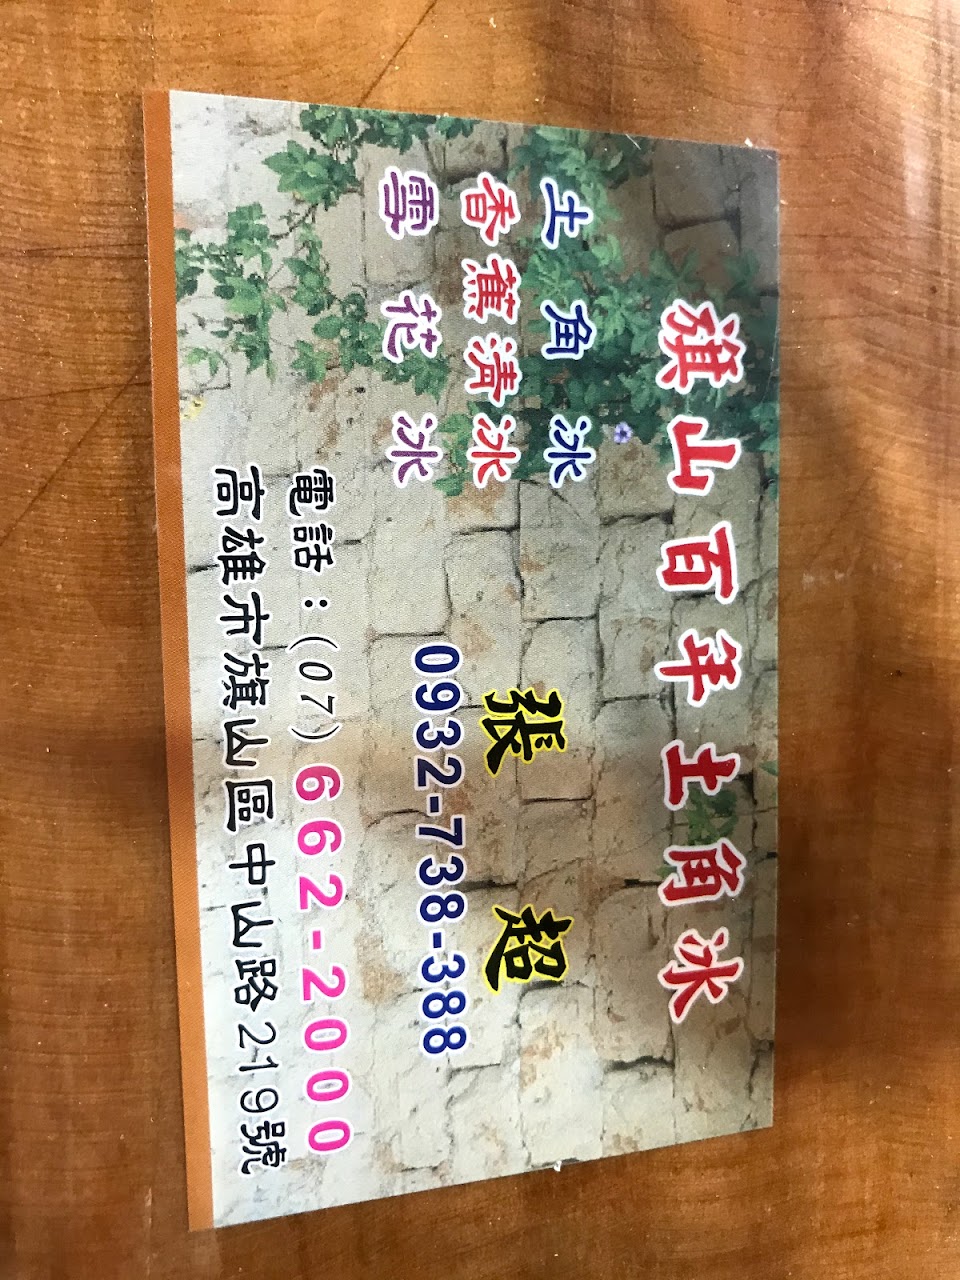 旗山百年土角冰
土角冰
香蕉清冰
雪花冰
張超
0932-738-388
電話：(07)662-2000
高雄市旗山區中山路219號